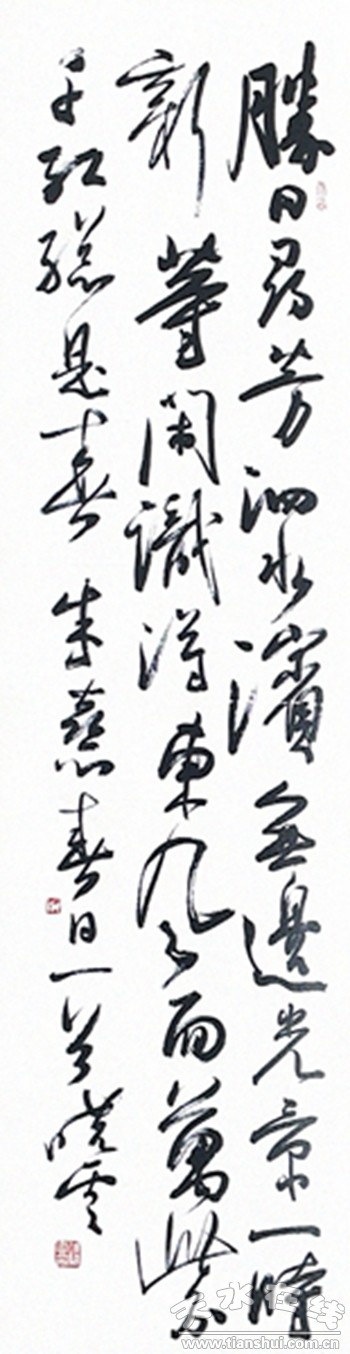 勝日尋芳泗水濱無邊光景一時
新等閑識得東風面萬紫
千紅總是春 朱熹春日一首 曉雲
天水在线
www.tianshui.com.cn